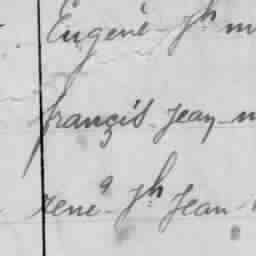 Eugene Jh m
françis Jean m
rene Jh Jean